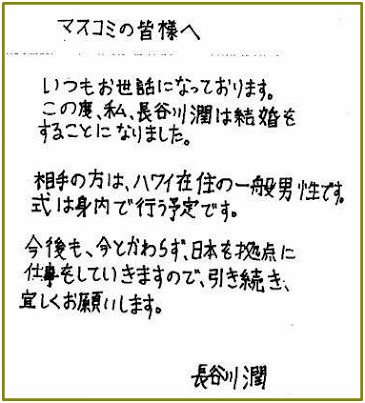 マスコミの皆様へ
いつもお世話になっております。
この度、私、長谷川潤は結婚を
することになりました。
相手の方は、ハワイ在住の一般男性です。
式は身内で行う予定です。
今後も、今とかわらず、日本を拠点に
仕事をしていきますので、引き続き、
宜しくお願いします。
長谷川潤